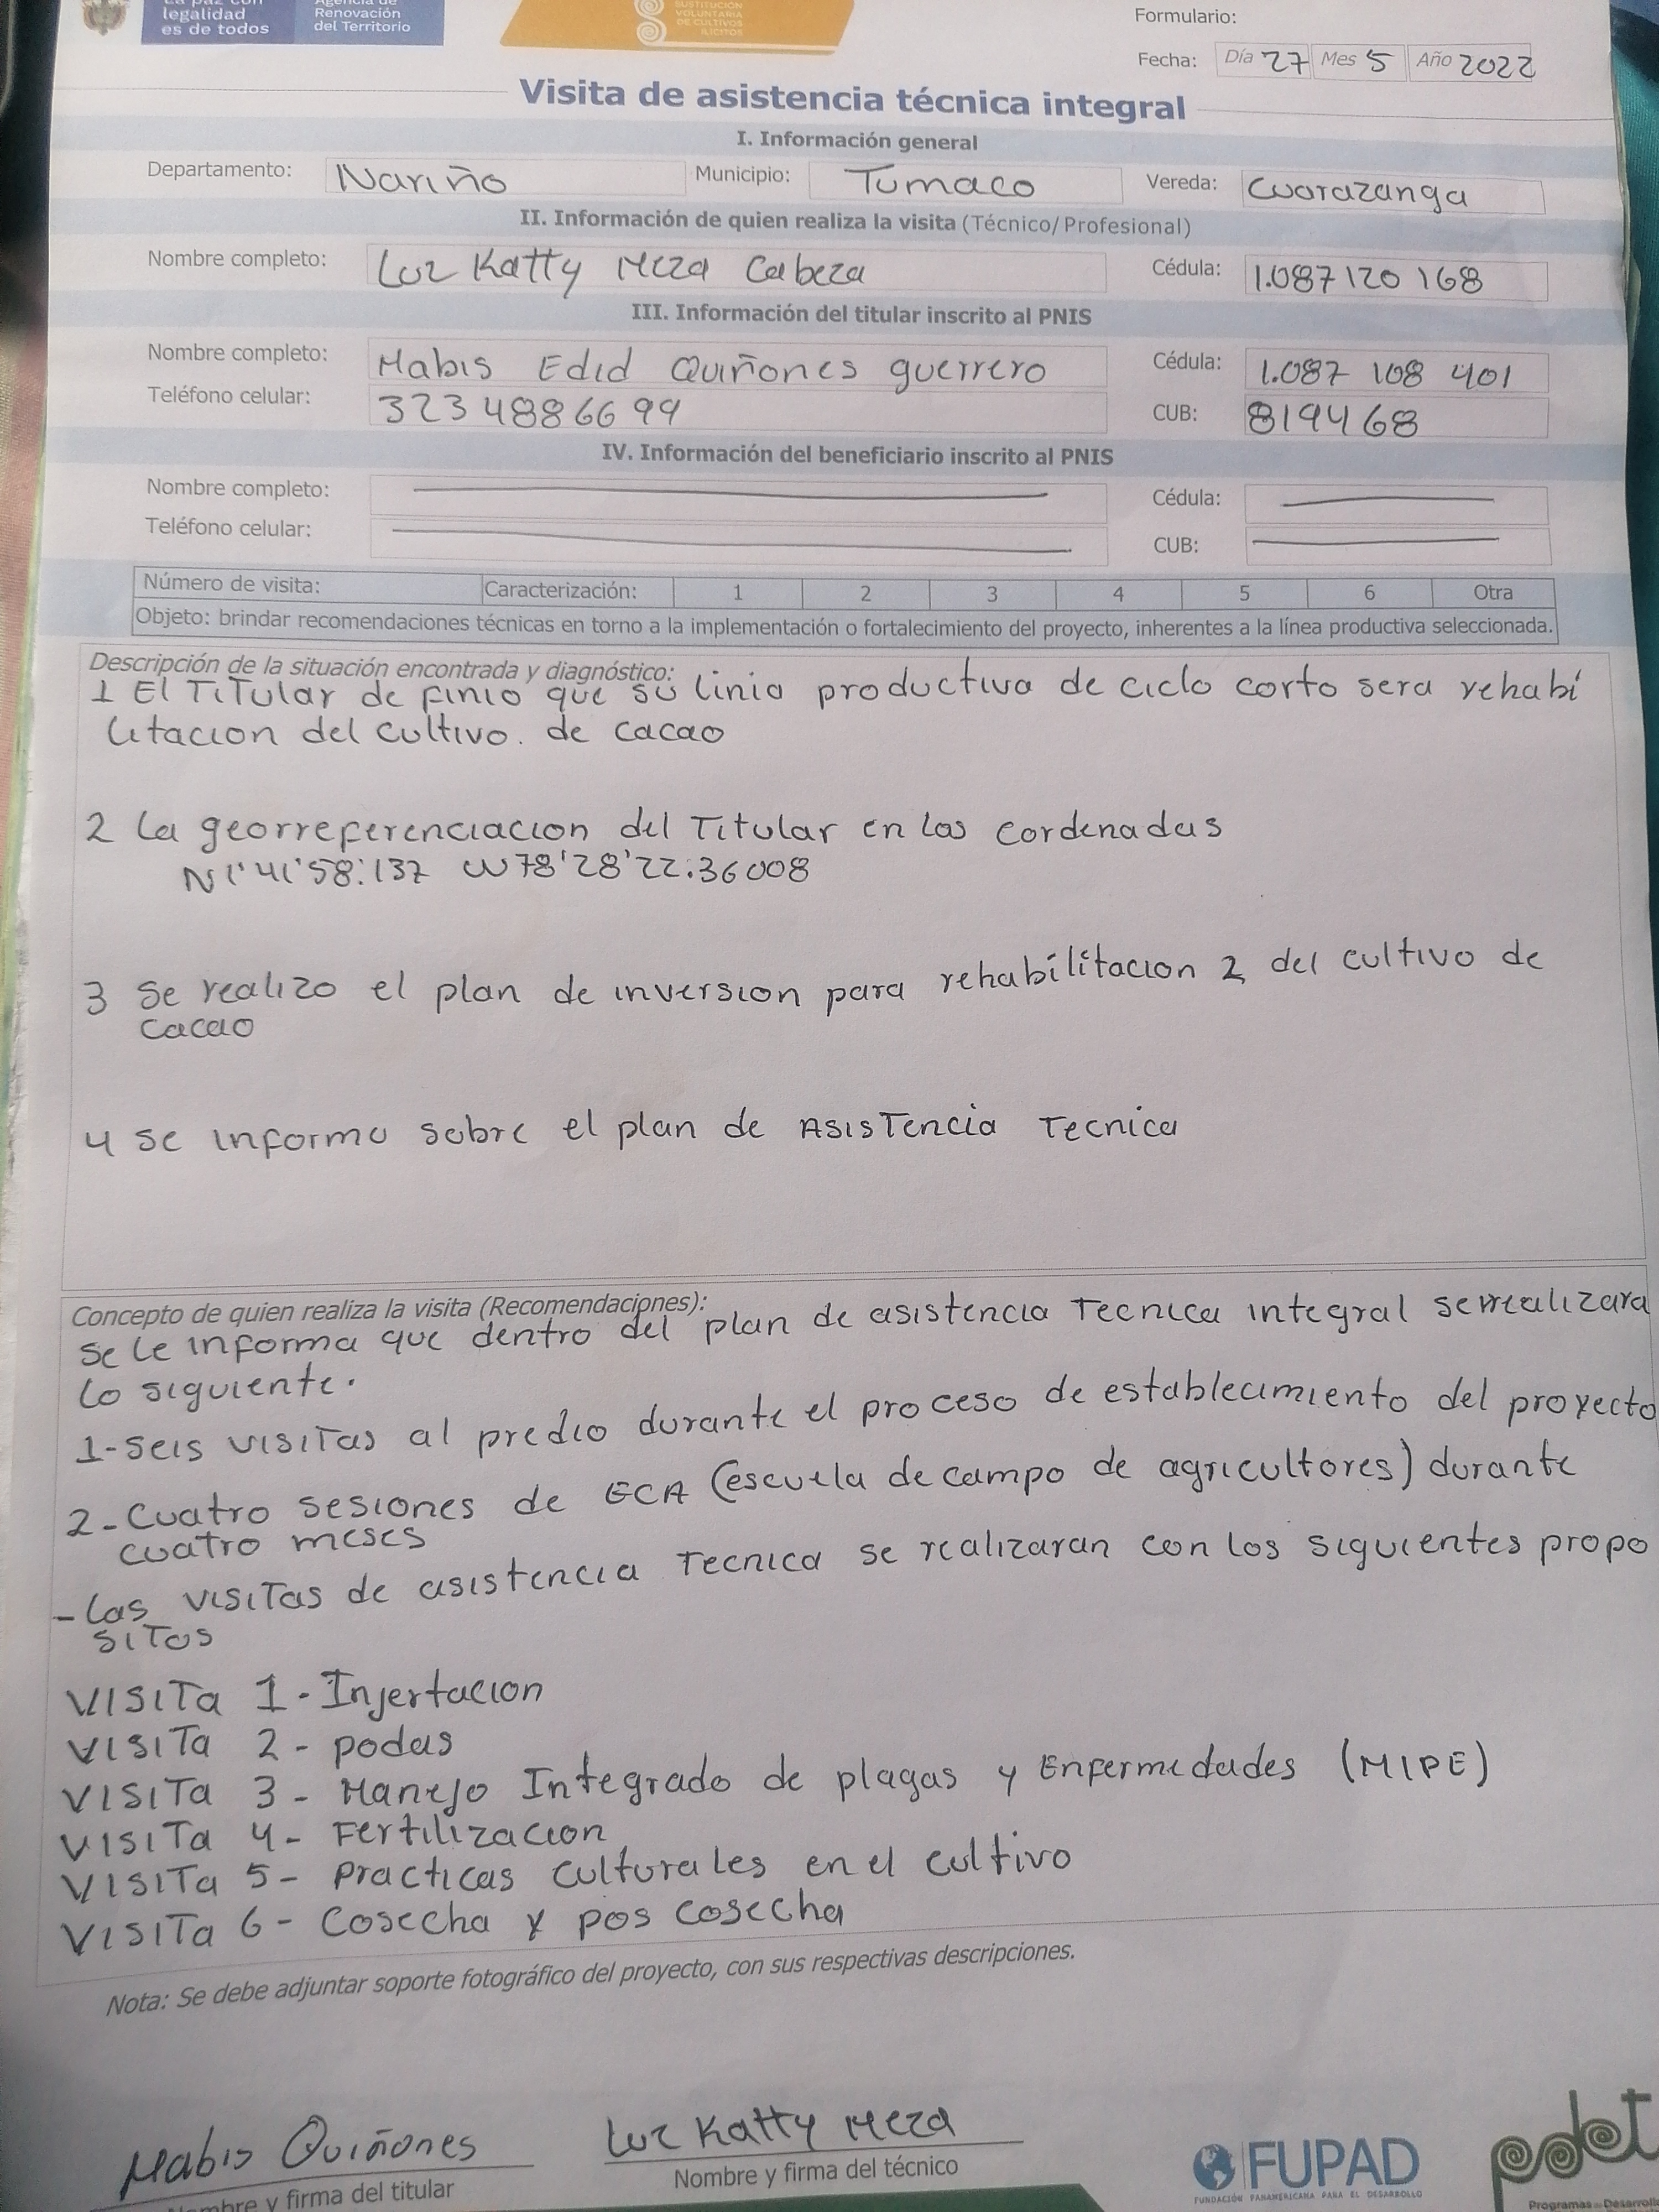 La paz con
legalidad
es de todos
Agencia de
Renovación
del Territorio
SUSTITUCIÓN
VOLUNTARIA
DE CULTIVOS
ILÍCITOS
Formulario:
Fecha: Día 27 Mes 5 Año 2022
Visita de asistencia técnica integral
I. Información general
Departamento: Nariño Municipio: Tumaco Vereda: Cuarazanga
II. Información de quien realiza la visita (Técnico/Profesional)
Nombre completo: Luz Katty Meza Cabeza Cédula: 1.087120 168
III. Información del titular inscrito al PNIS
Nombre completo: Mabis Edid Quiñones guerrero Cédula: 1.087 108 401
Teléfono celular: 323 48866 99 CUB: 819468
IV. Información del beneficiario inscrito al PNIS
Nombre completo: Cédula:
Teléfono celular: CUB:
Número de visita: Caracterización: 1 2 3 4 5 6 Otra
Objeto: brindar recomendaciones técnicas en torno a la implementación o fortalecimiento del proyecto, inherentes a la línea productiva seleccionada.
Descripción de la situación encontrada y diagnóstico:
1 El Titular de finio que su linia productiva de ciclo corto sera rehabi
litacion del cultivo. de cacao
2 la georreferenciacion del Titular en las cordenadas
N1'41'58:137 W78'28'22.36008
3 Se realizo el plan de inversion para rehabilitacion 2 del cultivo de
cacao
4 se informo sobre el plan de Asistencia Tecnica
Concepto de quien realiza la visita (Recomendaciones):
se le informa que dentro del plan de asistencia Tecnica integral se realizara
lo siguiente.
1-seis visitas al predio durante el proceso de establecimiento del proyecto
2-Cuatro sesiones de ECA (escuela de campo de agricultores) durante
cuatro meses
-las visitas de asistencia Tecnica se realizaran con los siguientes propo
sitos
VISITa 1-Injertacion
VISITa 2-podas
VISITa 3-Manejo Integrado de plagas y Enfermedades (MIPE)
VISITa 4-Fertilizacion
VISITa 5-practicas culturales en el cultivo
VISITa 6-Cosecha y pos cosecha
Nota: Se debe adjuntar soporte fotográfico del proyecto, con sus respectivas descripciones.
Mabis Quiñones Luz Katty Meza
Nombre y firma del titular Nombre y firma del técnico
FUPAD
FUNDACIÓN PANAMERICANA PARA EL DESARROLLO
pdet
Programas de Desarrollo